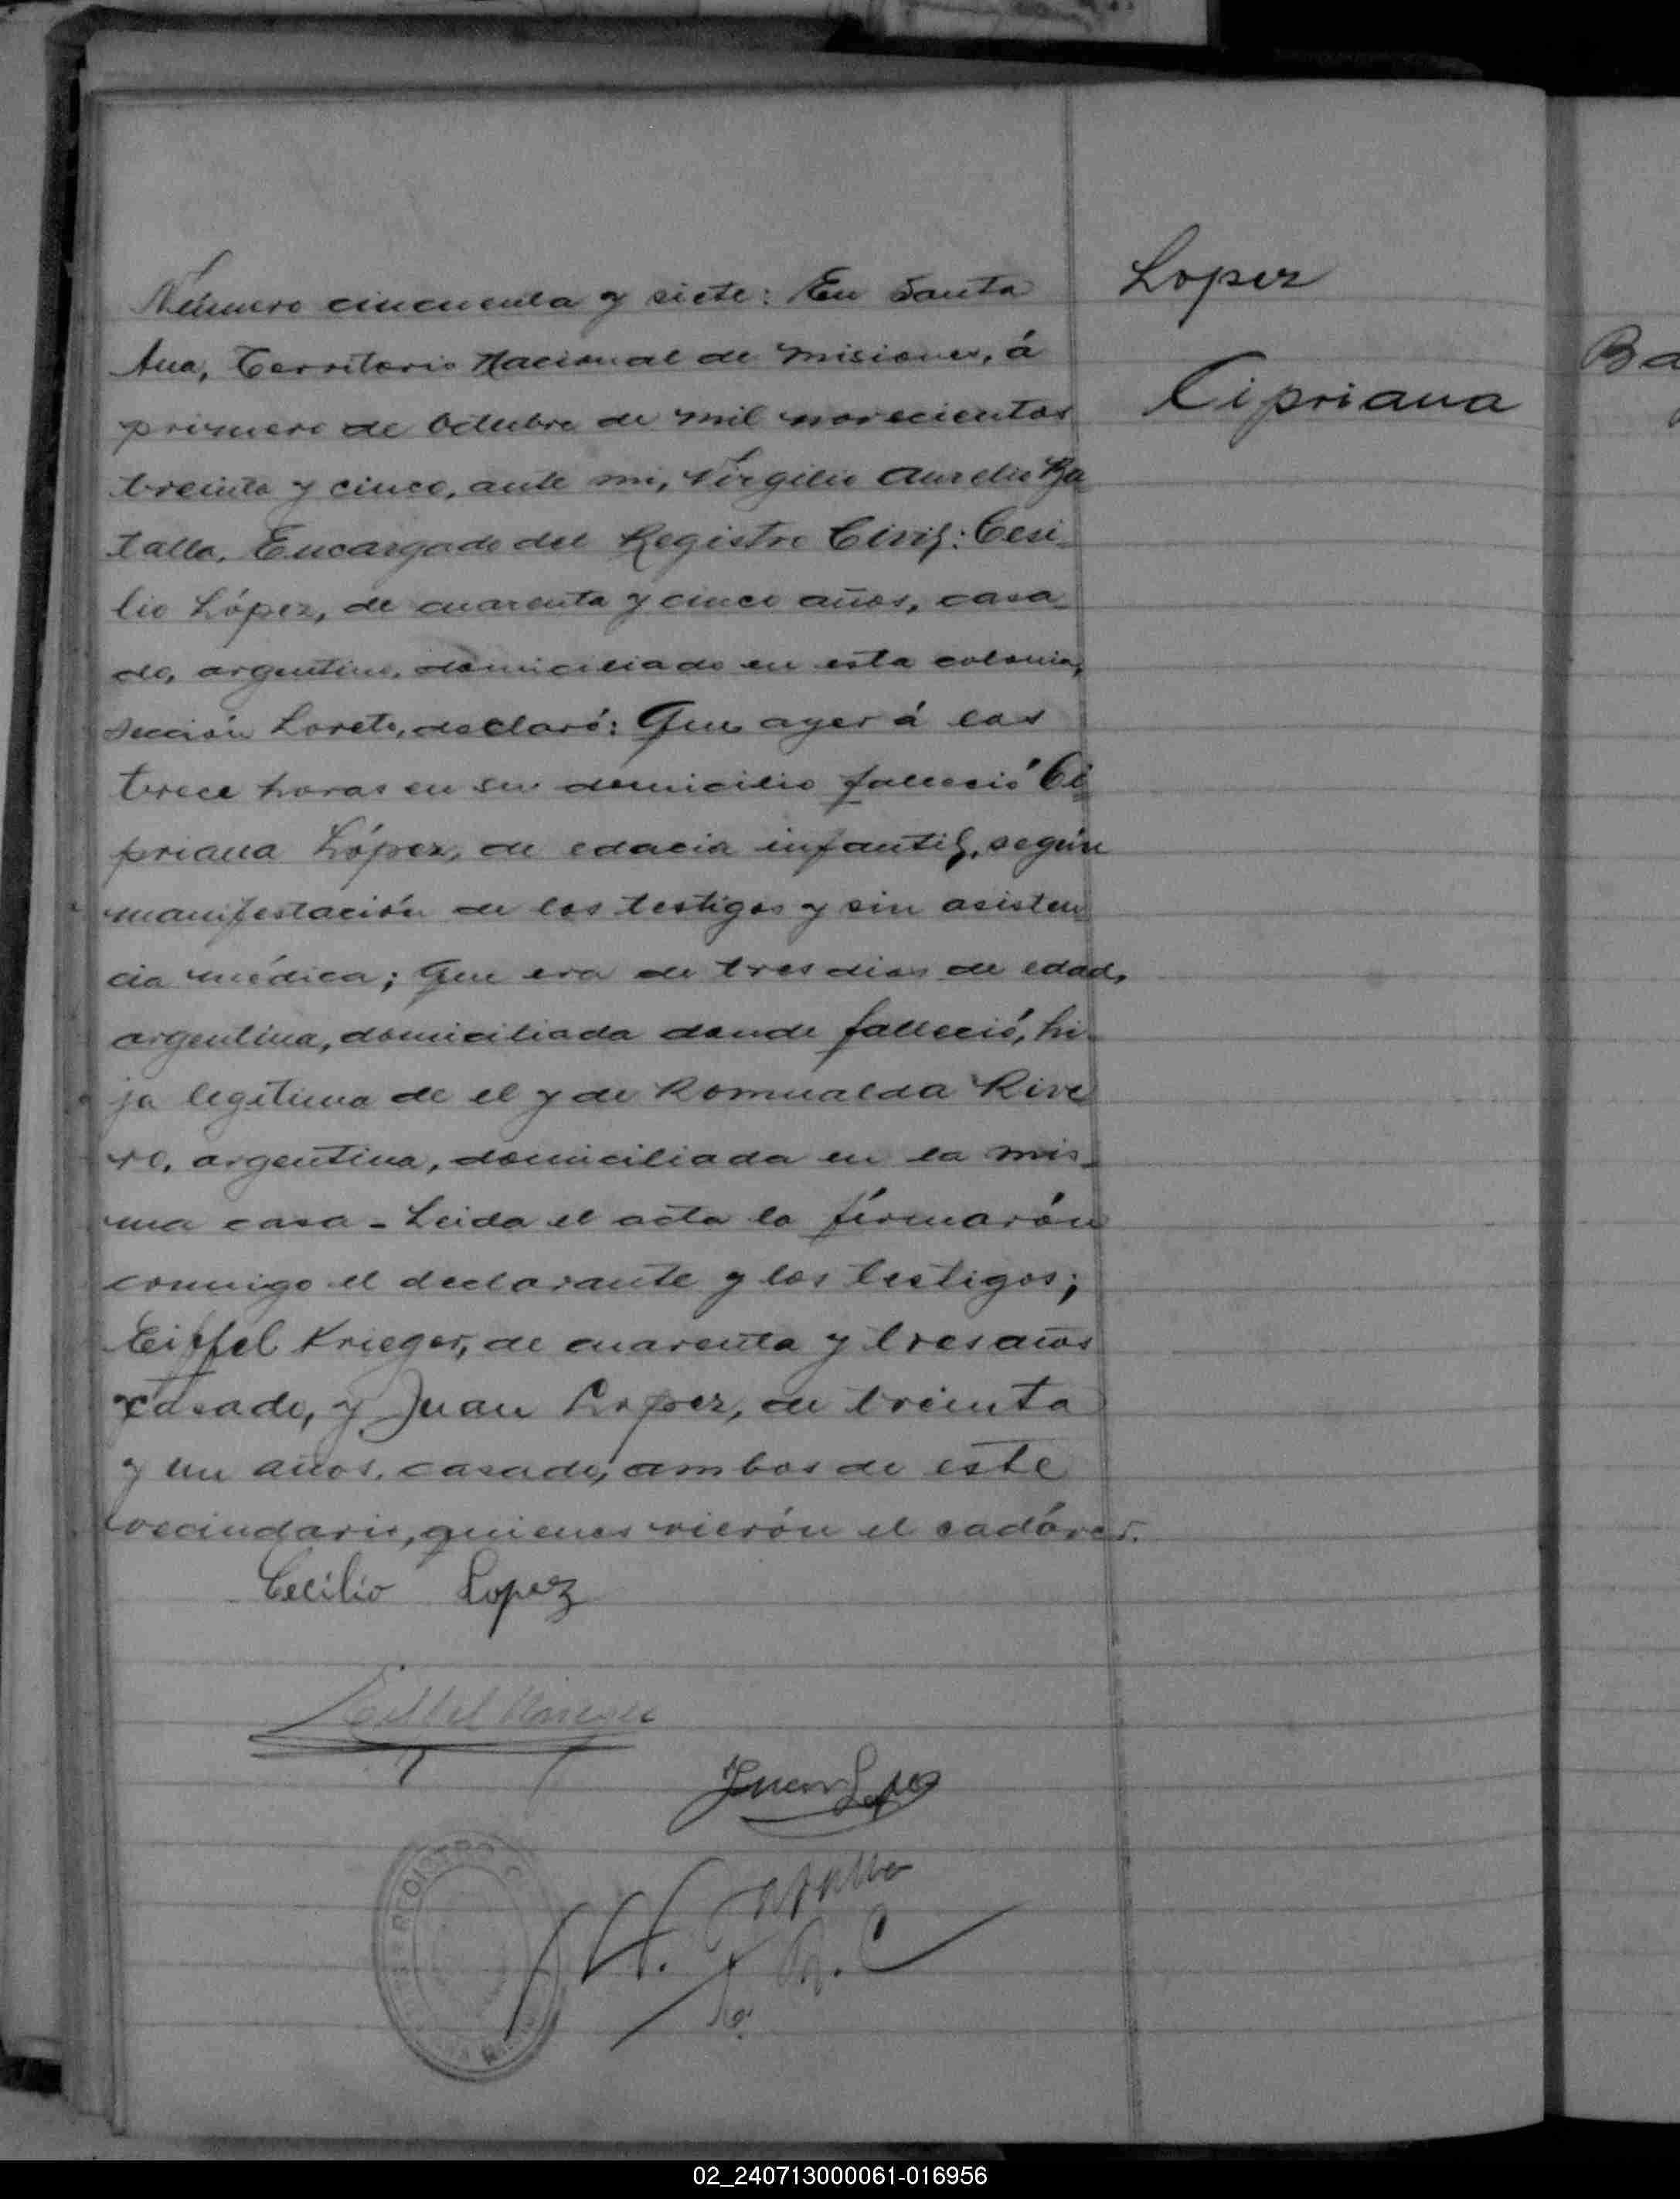 Lopez
Cipriana
Número cincuenta y siete: En Santa
Ana, Territorio Nacional de Misiones, á
primero de Octubre de mil novecientos
treinta y cinco, ante mi, Virgilio Aurelio Ba
talla, Encargado del Registro Civil: Cesi-
lio López, de cuarenta y cinco años, casa-
do, argentino, domiciliado en esta colonia,
sección Loreto, declaró: Que ayer á las
trece horas en su domicilio falleció Ci
priana López, de edacia infantil, según
manifestación de los testigos y sin asisten
cia médica; Que era de tres dias de edad,
argentina, domiciliada donde falleció, hi-
ja legitima de el y de Romualda Rive
ro, argentina, domiciliada en la mis-
ma casa - Leida el acta la firmarón
conmigo el declarante y los testigos;
Eiffel Krieger, de cuarenta y tres años
casado, y Juan Lopez, de treinta
y un años, casado, ambos de este
vecindario, quienes vierón el cadáver.
Cecilio Lopez
Eiffel Krieger
Juan Lopez
Batalla
R. C
REGISTRO
Ba
02_240713000061-016956